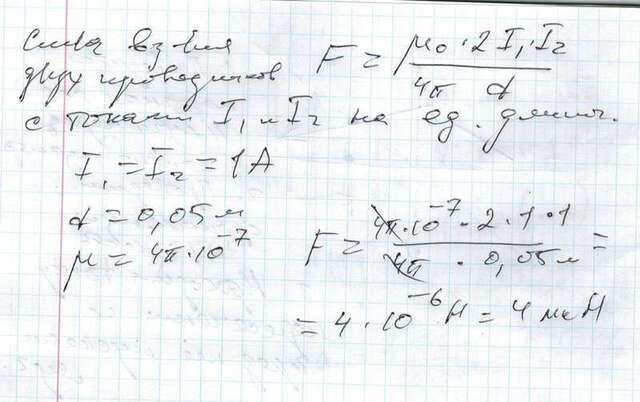 Сила вз-вия
двух проводников F = μ₀·2I₁·I₂ / 4π d
с токами I₁ и I₂ на ед. длины.
I₁ = I₂ = 1A
d = 0,05 м
μ = 4π·10⁻⁷ F = 4π·10⁻⁷·2·1·1 / 4π · 0,05 м =
= 4·10⁻⁶ Н = 4 мкН